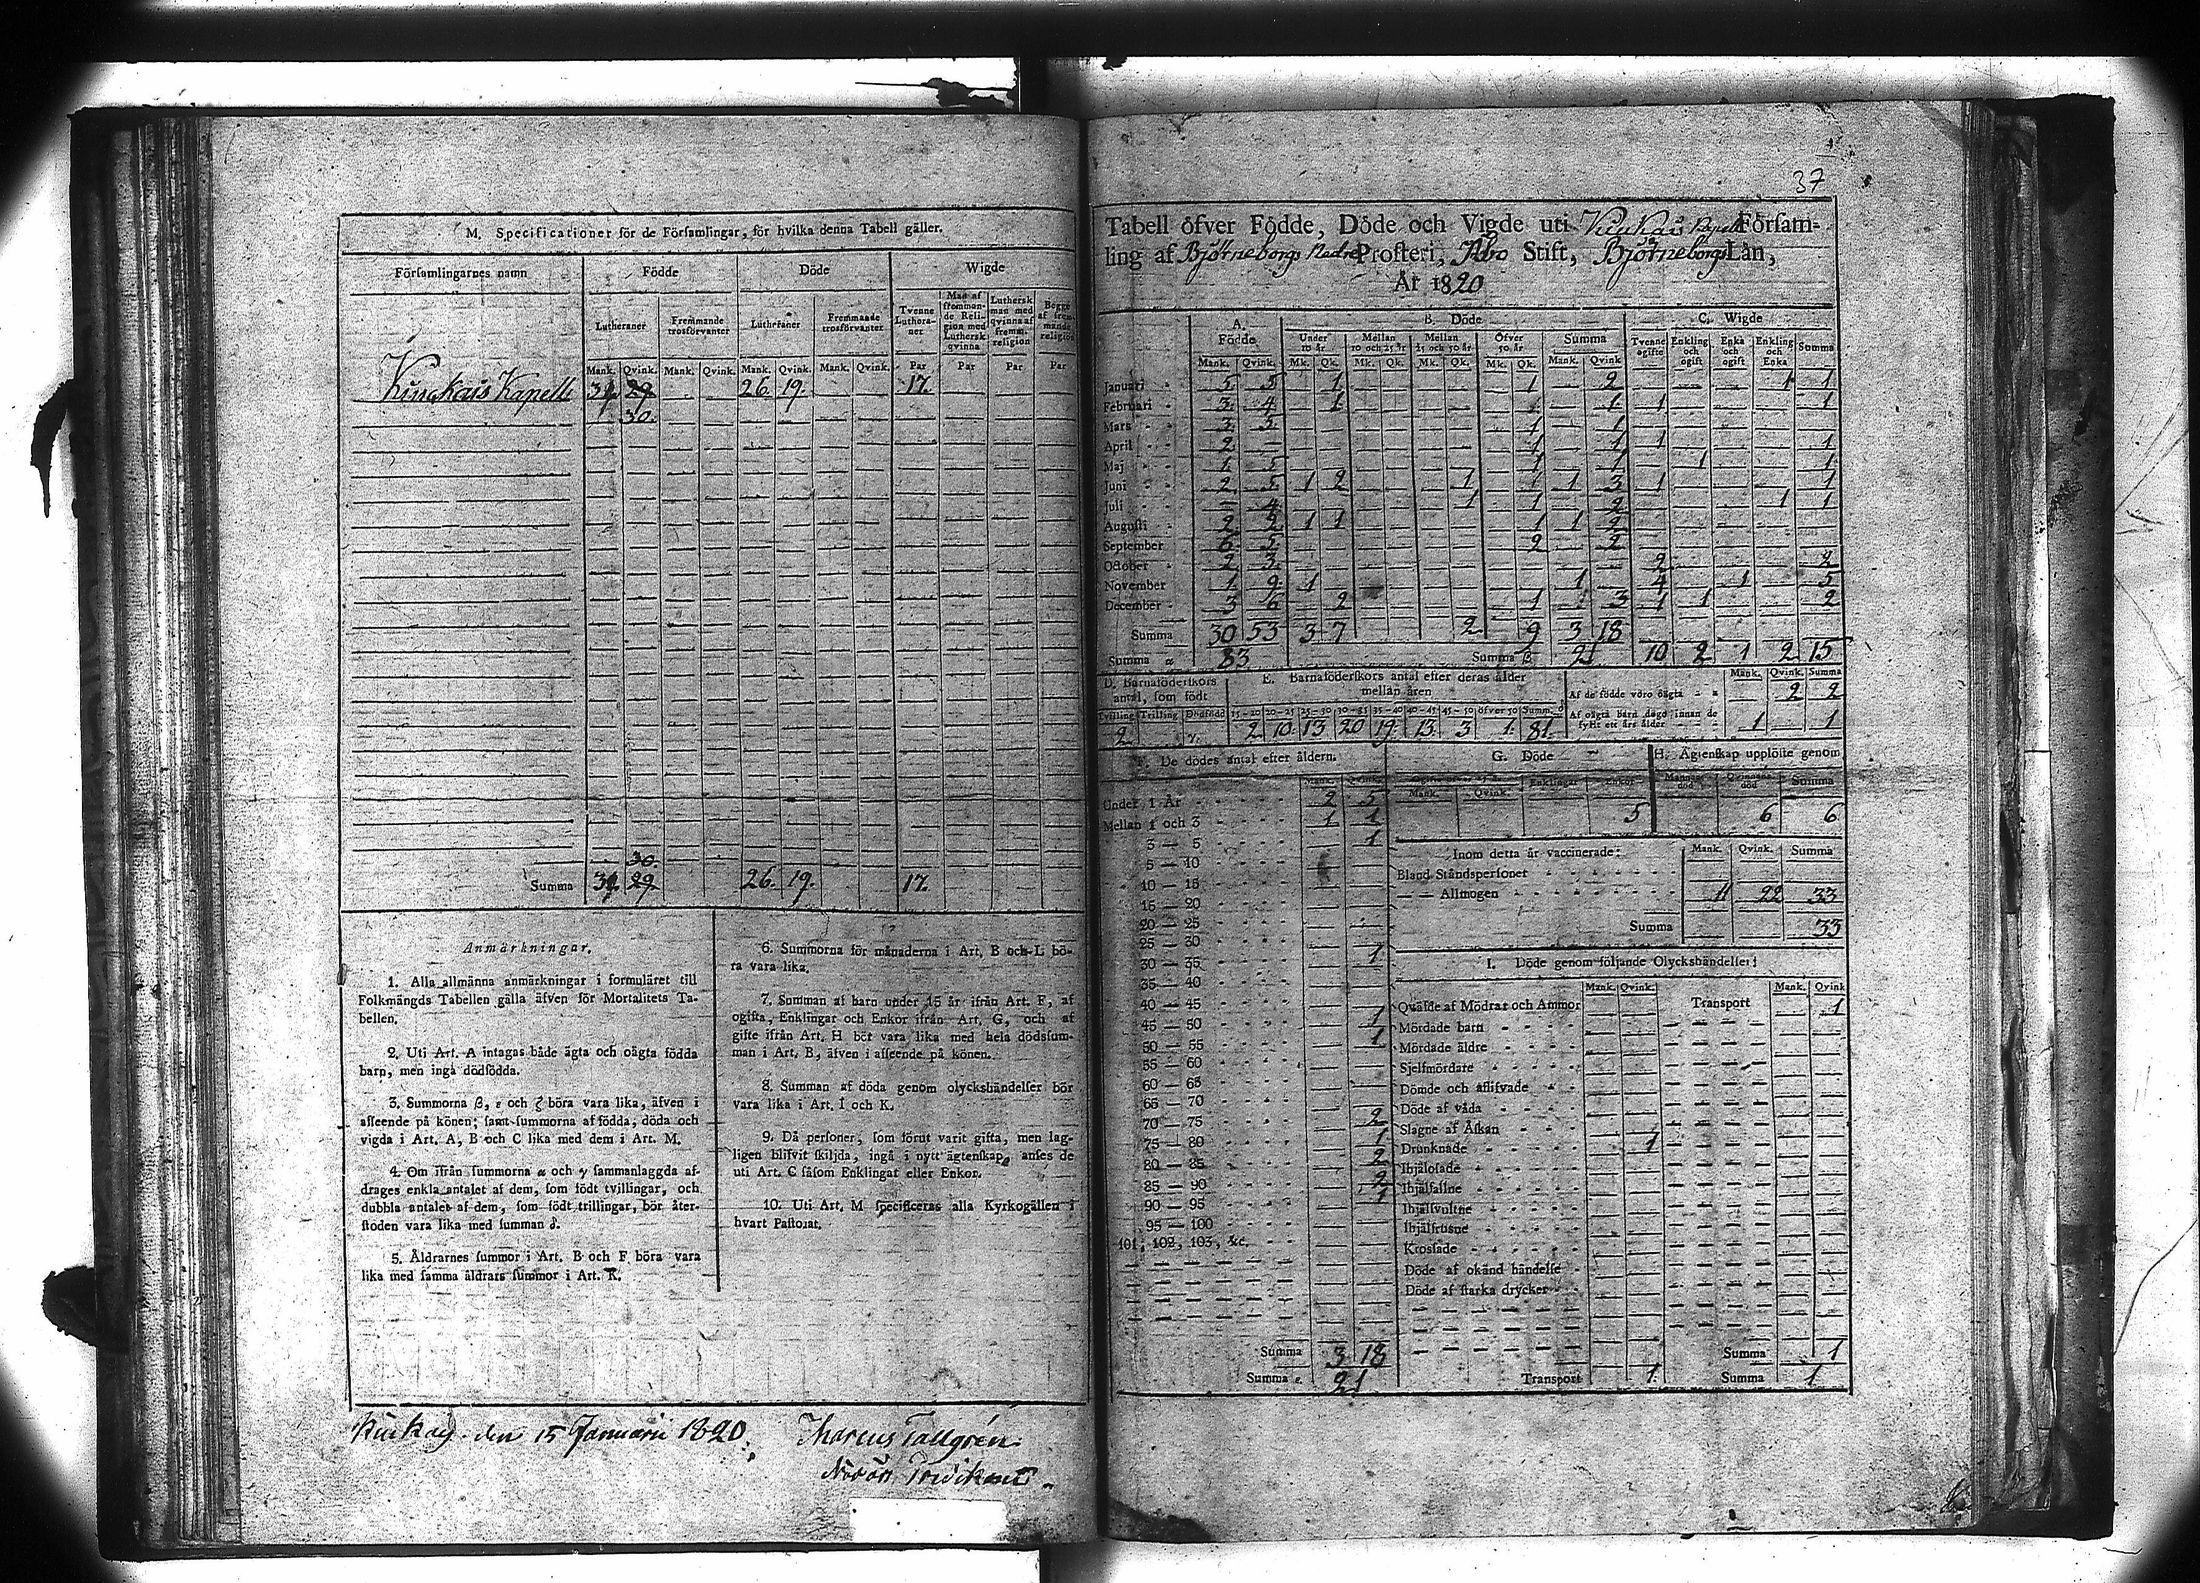 M. Specificationer för de Församlingar, för hvilka denna Tabell gäller.
Församlingarnes namn Födde Döde Wigde
Lutheraner Fremmande trosförvanter Lutheraner Fremmande trosförvanter Tvenne Lutheraner Man af fremmande Religion med Luthersk qvinna Luthersk man med qvinna af fremm. religion Begge af fremmande religion
Mank. Qvink. Mank. Qvink. Mank. Qvink. Mank. Qvink. Par Par Par Par
Kapell 29. 26. 19. 17.
30.
30.
Summa 29 26. 19. 17.
Anmärkningar.
1. Alla allmänna anmärkningar i formuläret till
Folkmängds Tabellen gälla äfven för Mortalitets Ta-
bellen.
2. Uti Art. A intagas både ägta och oägta födda
barn, men inga dödfödda.
3. Summorna β, ε och ζ böra vara lika, äfven i
afseende på könen; samt summorna af födda, döda och
vigda i Art. A, B och C lika med dem i Art. M.
4. Om ifrån summorna α och γ sammanlaggda af-
drages enkla antalet af dem, som födt tvillingar, och
dubbla antalet af dem, som födt trillingar, bör åter-
stoden vara lika med summan δ.
5. Åldrarnes summor i Art. B och F böra vara
lika med samma åldrars summor i Art. K.
6. Summorna för månaderna i Art. B och L bö-
ra vara lika.
7. Summan af barn under 15 år ifrån Art. F, af
ogifta, Enklingar och Enkor ifrån Art. G, och af
gifte ifrån Art. H bör vara lika med hela dödssum-
man i Art. B, äfven i afseende på könen.
8. Summan af döda genom olyckshändelser bör
vara lika i Art. I och K.
9. Då personer, som förut varit gifta, men lag-
ligen blifvit skiljda, ingå i nytt ägtenskap, anses de
uti Art. C såsom Enklingar eller Enkor.
10. Uti Art. M specificeras alla Kyrkogällen i
hvart Pastorat.
den 15 Januarii 1820.
Marcus Tallgrén
37
Tabell öfver Födde, Döde och Vigde uti Församling
ling af Björneborgs Nedre Prosteri, Åbo Stift, Björneborgs Län,
År 1820
A. Födde B. Döde C. Wigde
Under 10 år Mellan 10 och 25 år Mellan 25 och 50 år Öfver 50 år Summa Tvenne ogifte Enkling och ogift Enka och ogift Enkling och Enka Summa
Mank. Qvink. Mk. Qk. Mk. Qk. Mk. Qk. Mk. Qk. Mank. Qvink
Januari 5 5 1 1 2 1 1
Februari 3 4 1 1 1 1
Mars 3 5 1 1
April 2 1 1 1 1
Maj 1 5 1 1 1 1
Juni 2 5 1 2 1 1 3 1 1
Juli 4 1 1 2 1 1
Augusti 2 2 1 1 1 1 2
September 6 5 2 2
October 2 3 2 2
November 1 9 1 1 4 1 5
December 3 6 2 1 3 1 1 2
Summa 30 53 3 7 2 9 3 18
Summa α 83 Summa β 21 10 2 1 2 15
D. Barnaföderskors antal, som födt
Tvilling Trilling Dödfödd
2 γ.
E. Barnaföderskors antal efter deras ålder mellan åren
15-20 20-25 25-30 30-35 35-40 40-45 45-50 öfver 50 Summ. δ
2 10 13 20 19 13 3 1 81.
Mank. Qvink. Summa
Af de födde voro oägta 2 2
Af oägta barn dogo innan de fyllt ett års ålder 1 1
F. De dödes antal efter åldern.
Mank. Qvink.
Under 1 År 2 5
Mellan 1 och 3 1 1
3 — 5 1
5 — 10
10 — 15
15 — 20
20 — 25
25 — 30
30 — 35 1
35 — 40
40 — 45
45 — 50 1
50 — 55 1
55 — 60
60 — 65
65 — 70
70 — 75 2
75 — 80 1
80 — 85 2
85 — 90 2
90 — 95 1
95 — 100
101, 102, 103, &c.
Summa 3 18
Summa ε. 21
G. Döde
Mank. Qvink. Enklingar Enkor
5
H. Ägtenskap upplöste genom
Mannens död Qvinnans död Summa
6 6
Inom detta år vaccinerade: Mank. Qvink. Summa
Bland Ståndspersoner
— — Allmogen 11 22 33
Summa 33
I. Döde genom följande Olyckshändelser:
Mank. Qvink. Mank. Qvink
Qväfde af Mödrar och Ammor Transport 1
Mördade barn
Mördade äldre
Sjelfmördare
Dömde och aflifvade
Döde af våda
Slagne af Åskan
Drunknade 1
Ihjälosade
Ihjälfallne
Ihjälsvultne
Ihjälfrusne
Krossade
Döde af okänd händelse
Döde af starka drycker
Summa 1
Transport 1. Summa 1